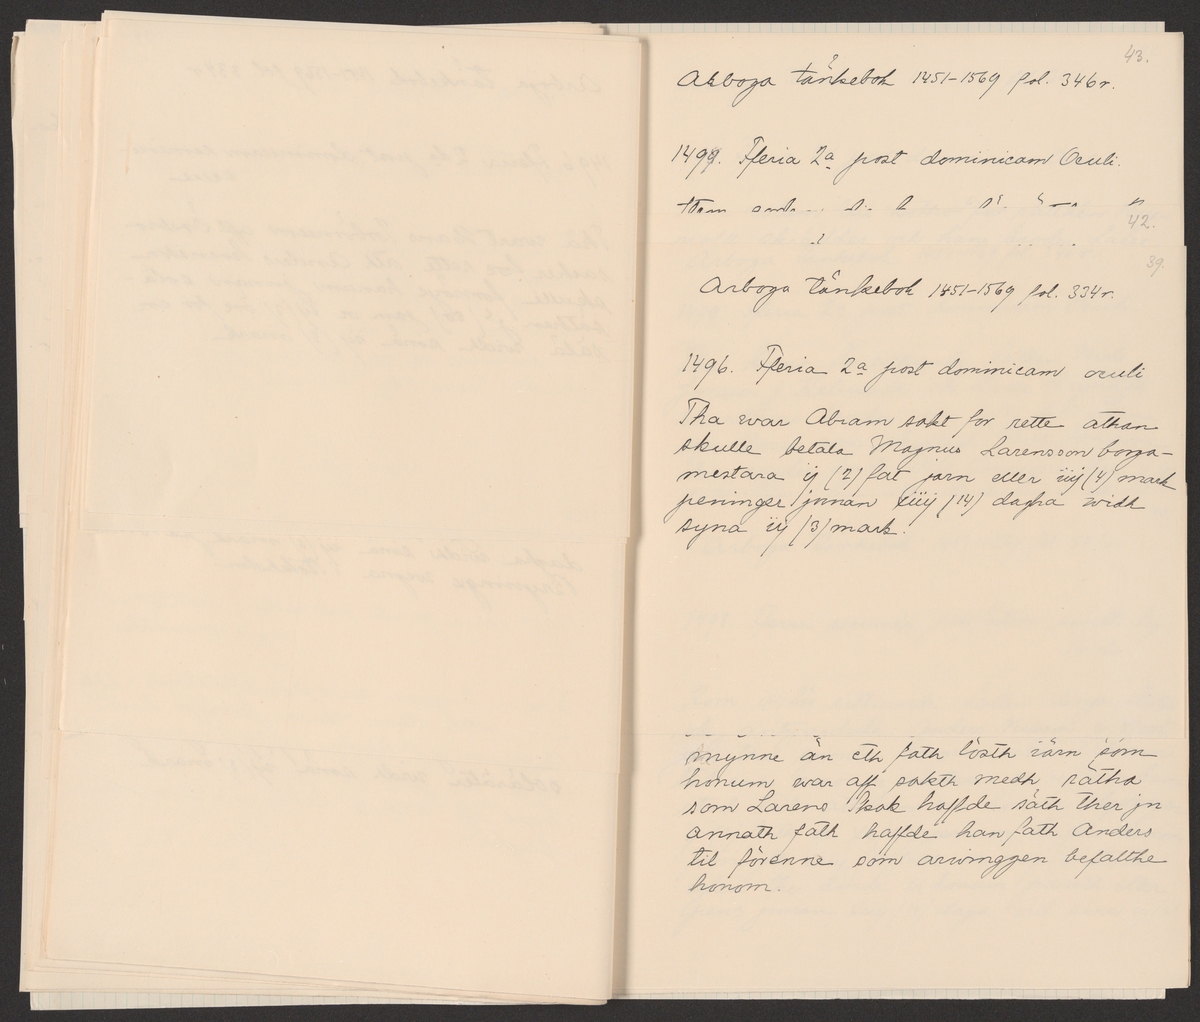 43.
Arboga tänkebok 1451-1569 fol. 346r.
1499. Fferia 2a post dominicam Oculi.
42.
39.
Arboga tänkebok 1451-1569 fol. 334r.
1496. Fferia 2a post dominicam oculi
Tha war Abram sakt for rette athan
skulle betala Magnus Larensson borga-
mestara ij (2) fat jarn eller iiij (4) mark
peninger jnnan xiiij (14) dagha widh
syna iij (3) mark.
mynne än eth fath lösth iärn som
honum war aff sakth medh rätha
som Larens Skak haffde säth ther jn
annath fath haffde han fath Anders
til förenne som arwinggen befalthe
honom.